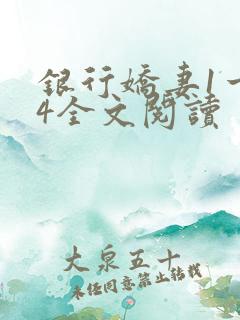 銀行嬌妻1一
4全文閱讀
大泉五十
未經同意禁止轉載